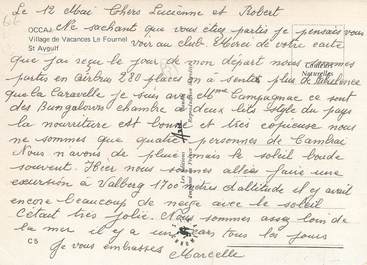 Le 12 Mai Chers Lucienne et Robert
OCCAJ
Village de Vacances Le Fournel
St Aygulf
Ne sachant que vous étiez partis je pensais vous
voir au club. Merci de votre carte
Couleurs
Naturelles
que j'ai reçu le jour de mon départ nous sommes
partis en airbus 280 places on a sentit plus de turbulence
que la Caravelle je suis avec Mme Campagnac ce sont
des Bungalows chambre a deux lits style du pays
la nourriture est bonne et très copieuse nous
ne sommes que quatre personnes de Cambrai
Nous n'avons de pluie mais le soleil boude
souvent. Hier nous sommes allées faire une
excursion à Valberg 1700 mètres d'altitude il y avait
encore beaucoup de neige avec le soleil
C'était très jolie. Nous sommes assez loin de
la mer il y a un cars tous les jours
C5
Je vous embrasses
Marcelle